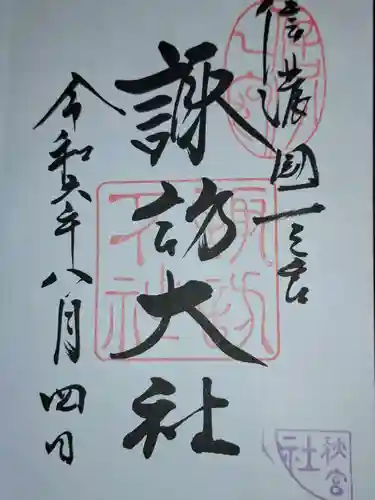 信濃國一之宮
諏訪大社
令和六年八月四日
諏訪大社
秋宮
社